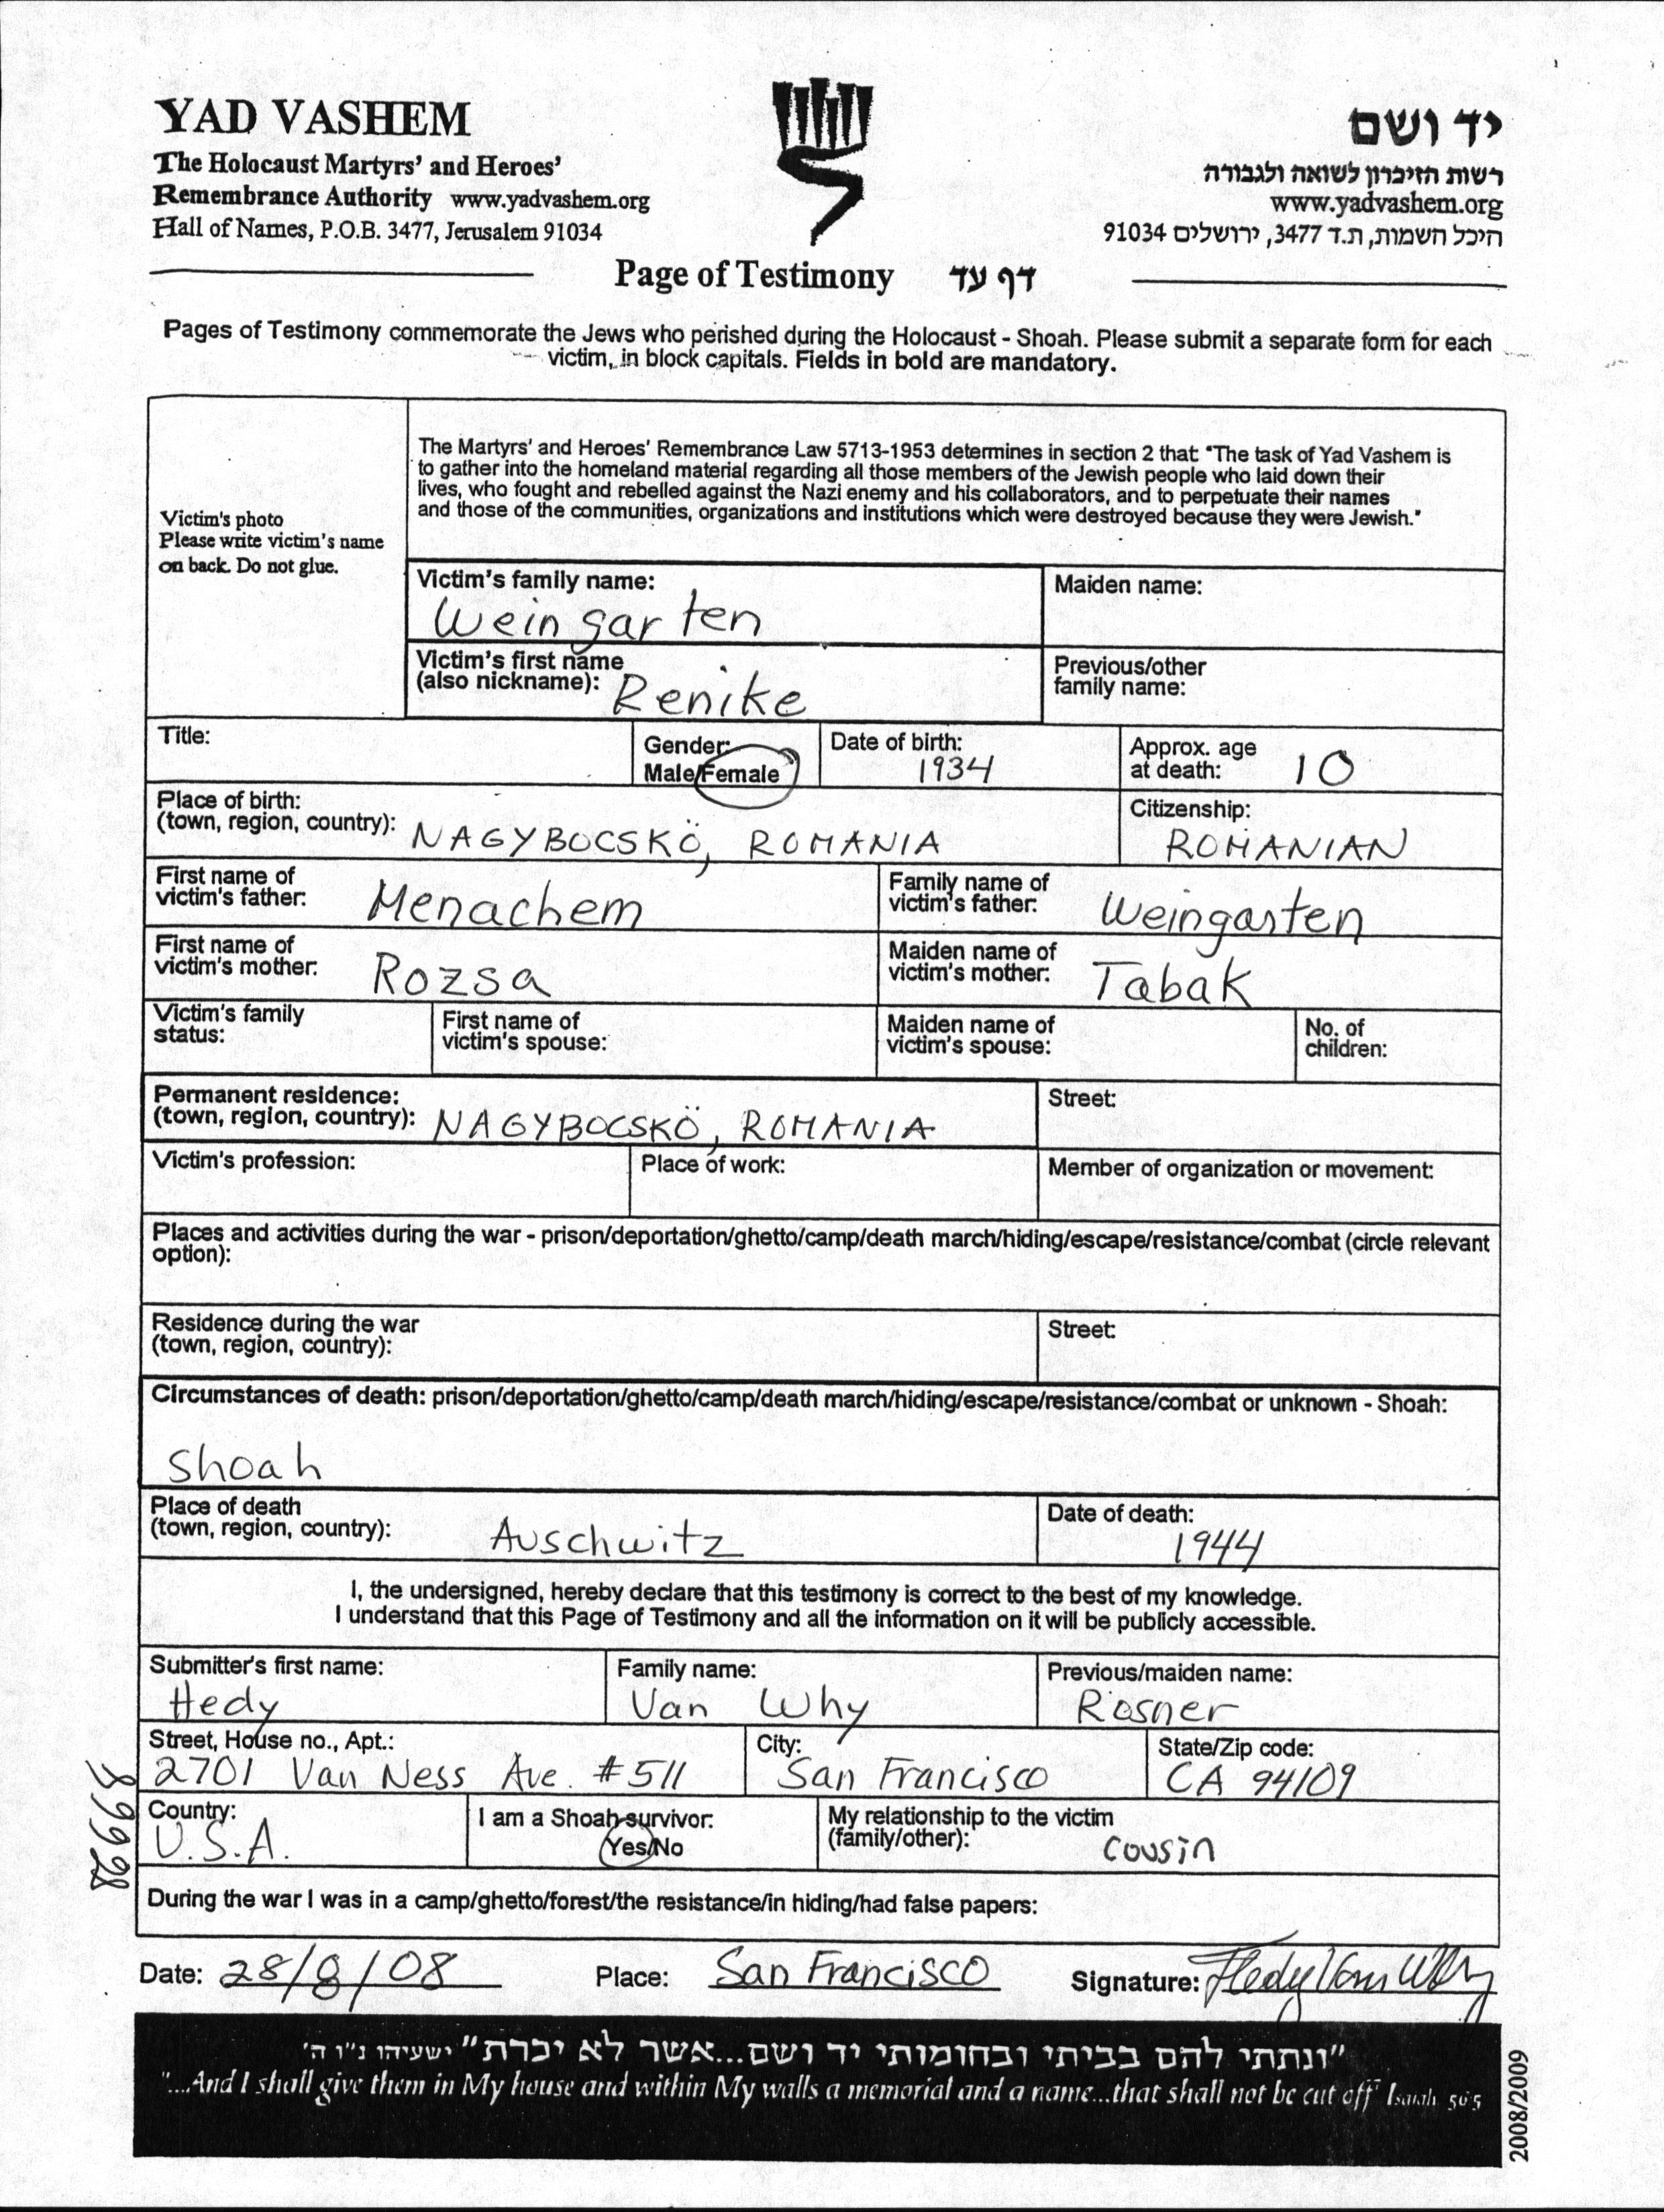 YAD VASHEM
The Holocaust Martyrs' and Heroes'
Remembrance Authority www.yadvashem.org
Hall of Names, P.O.B. 3477, Jerusalem 91034
יד ושם
רשות הזיכרון לשואה ולגבורה
www.yadvashem.org
היכל השמות, ת.ד 3477, ירושלים 91034
Page of Testimony דף עד
Pages of Testimony commemorate the Jews who perished during the Holocaust - Shoah. Please submit a separate form for each
victim, in block capitals. Fields in bold are mandatory.
Victim's photo
Please write victim's name
on back. Do not glue.
The Martyrs' and Heroes' Remembrance Law 5713-1953 determines in section 2 that: "The task of Yad Vashem is
to gather into the homeland material regarding all those members of the Jewish people who laid down their
lives, who fought and rebelled against the Nazi enemy and his collaborators, and to perpetuate their names
and those of the communities, organizations and institutions which were destroyed because they were Jewish."
Victim's family name:
Weingarten
Maiden name:
Victim's first name
(also nickname): Renike
Previous/other
family name:
Title:
Gender:
Male/Female
Date of birth:
1934
Approx. age
at death: 10
Place of birth:
(town, region, country): NAGYBOCSKÖ, ROMANIA
Citizenship:
ROMANIAN
First name of
victim's father: Menachem
Family name of
victim's father: Weingarten
First name of
victim's mother: Rozsa
Maiden name of
victim's mother: Tabak
Victim's family
status:
First name of
victim's spouse:
Maiden name of
victim's spouse:
No. of
children:
Permanent residence:
(town, region, country): NAGYBOCSKÖ, ROMANIA
Street:
Victim's profession:
Place of work:
Member of organization or movement:
Places and activities during the war - prison/deportation/ghetto/camp/death march/hiding/escape/resistance/combat (circle relevant
option):
Residence during the war
(town, region, country):
Street:
Circumstances of death: prison/deportation/ghetto/camp/death march/hiding/escape/resistance/combat or unknown - Shoah:
Shoah
Place of death
(town, region, country): Auschwitz
Date of death:
1944
I, the undersigned, hereby declare that this testimony is correct to the best of my knowledge.
I understand that this Page of Testimony and all the information on it will be publicly accessible.
Submitter's first name:
Hedy
Family name:
Van Why
Previous/maiden name:
Rosner
Street, House no., Apt.:
2701 Van Ness Ave. #511
City:
San Francisco
State/Zip code:
CA 94109
Country:
U.S.A.
I am a Shoah survivor:
Yes/No
My relationship to the victim
(family/other): cousin
During the war I was in a camp/ghetto/forest/the resistance/in hiding/had false papers:
Date: 28/8/08
Place: San Francisco
Signature: Hedy Van Why
"ונתתי להם בביתי ובחומותי יד ושם...אשר לא יכרת" ישעיהו נ"ו ה'
"...And I shall give them in My house and within My walls a memorial and a name...that shall not be cut off" Isaiah 56:5
2008/2009